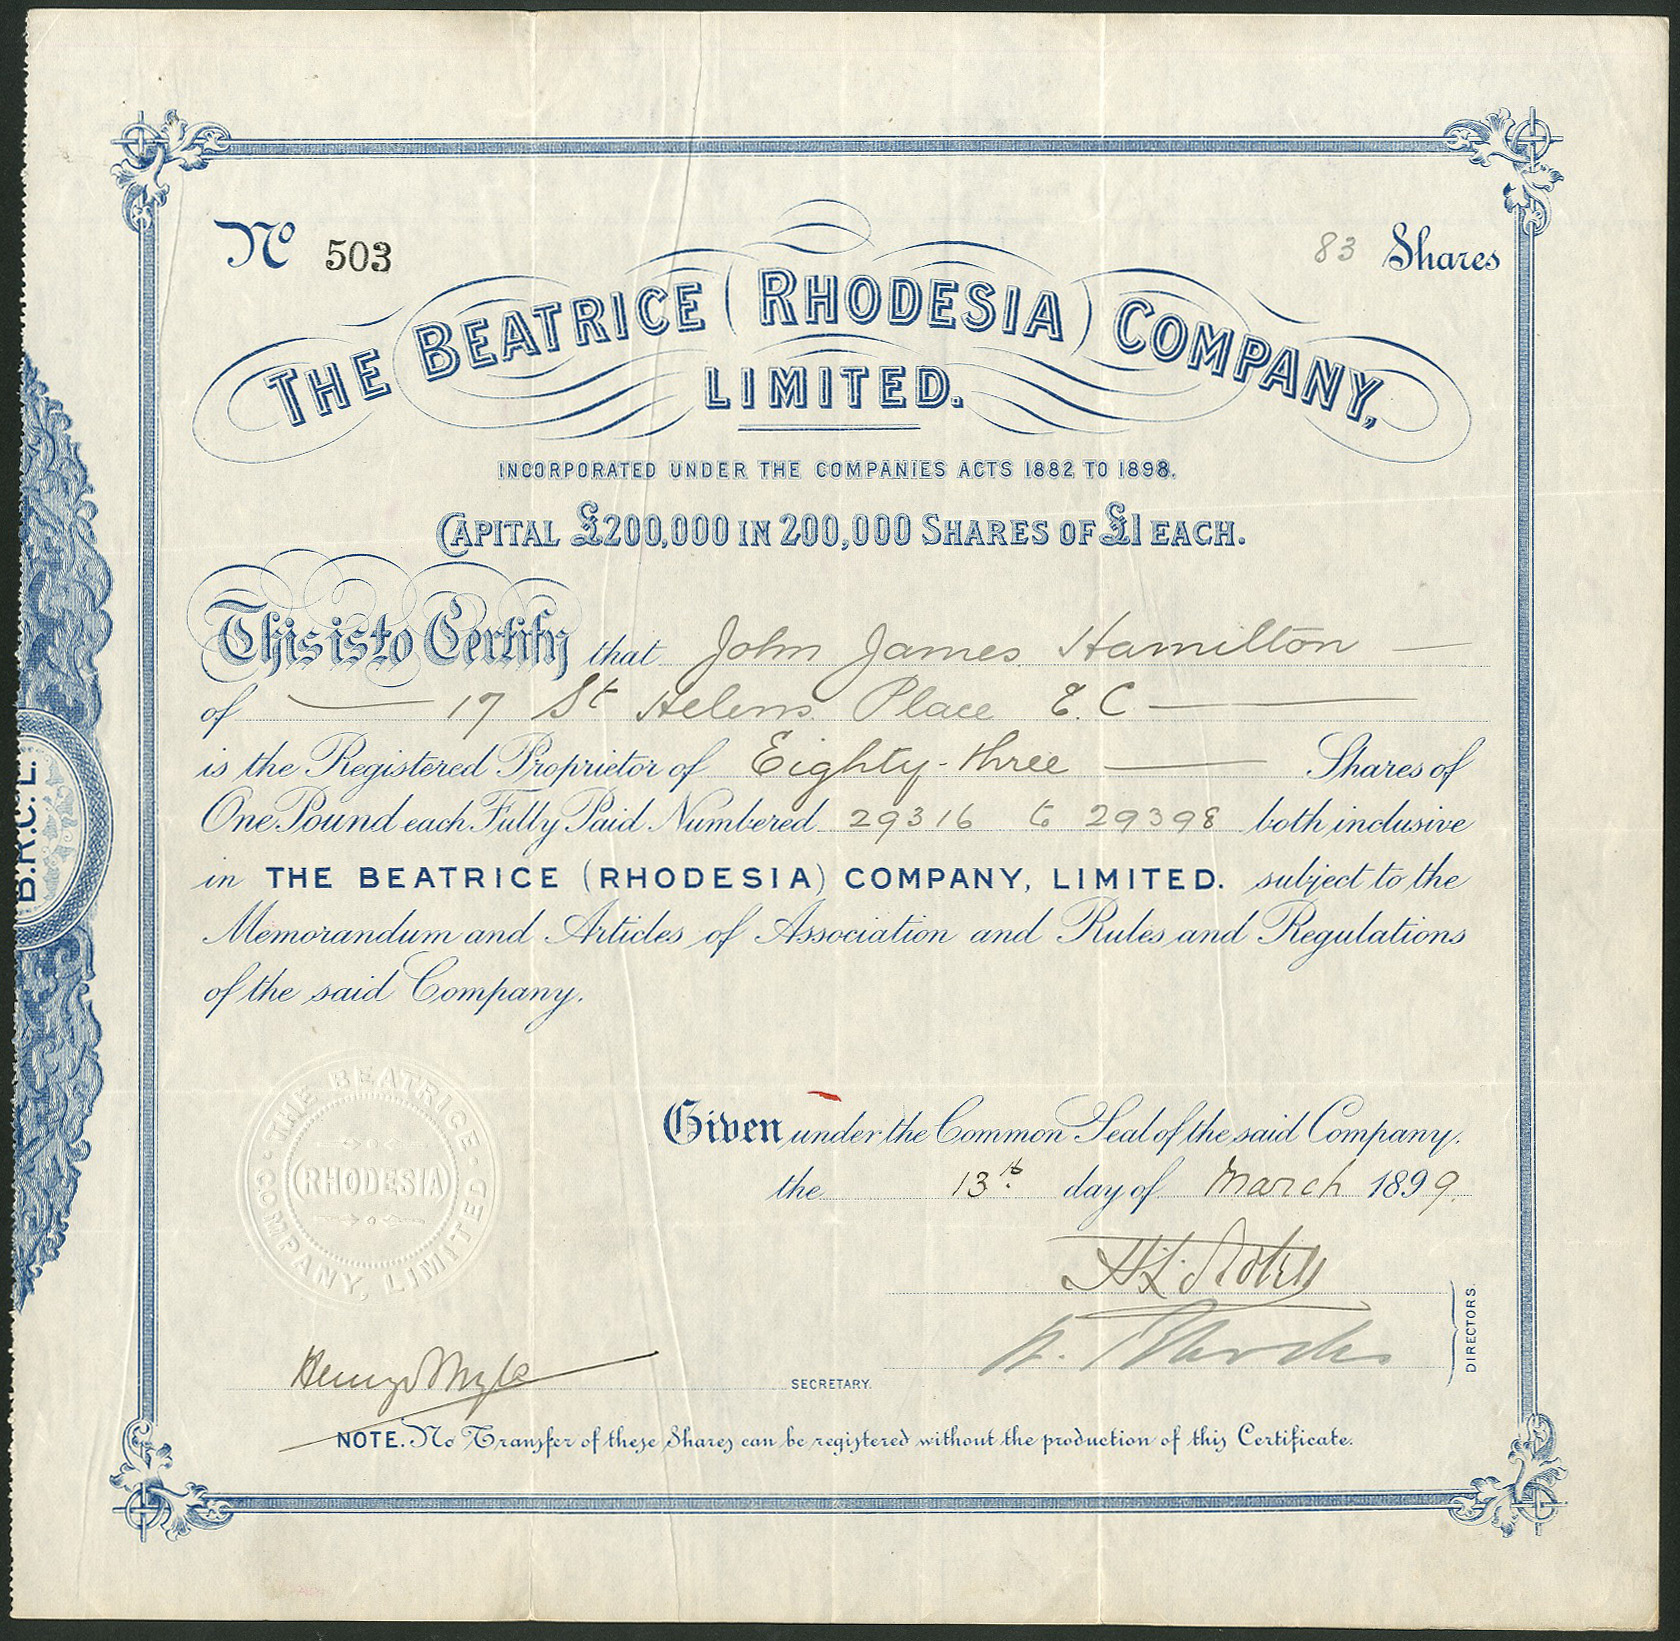 No 503
83 Shares
THE BEATRICE (RHODESIA) COMPANY,
LIMITED.
INCORPORATED UNDER THE COMPANIES ACTS 1882 TO 1898.
CAPITAL £200,000 IN 200,000 SHARES OF £1 EACH.
This is to Certify that John James Hamilton
of 17 St Helens Place E.C
is the Registered Proprietor of Eighty-three Shares of
One Pound each Fully Paid Numbered 29316 to 29398 both inclusive
in THE BEATRICE (RHODESIA) COMPANY, LIMITED. subject to the
Memorandum and Articles of Association and Rules and Regulations
of the said Company.
B.R.C.L.
THE BEATRICE COMPANY, LIMITED
(RHODESIA)
Given under the Common Seal of the said Company,
the 13th day of March 1899.
DIRECTORS.
SECRETARY.
NOTE. No Transfer of these Shares can be registered without the production of this Certificate.